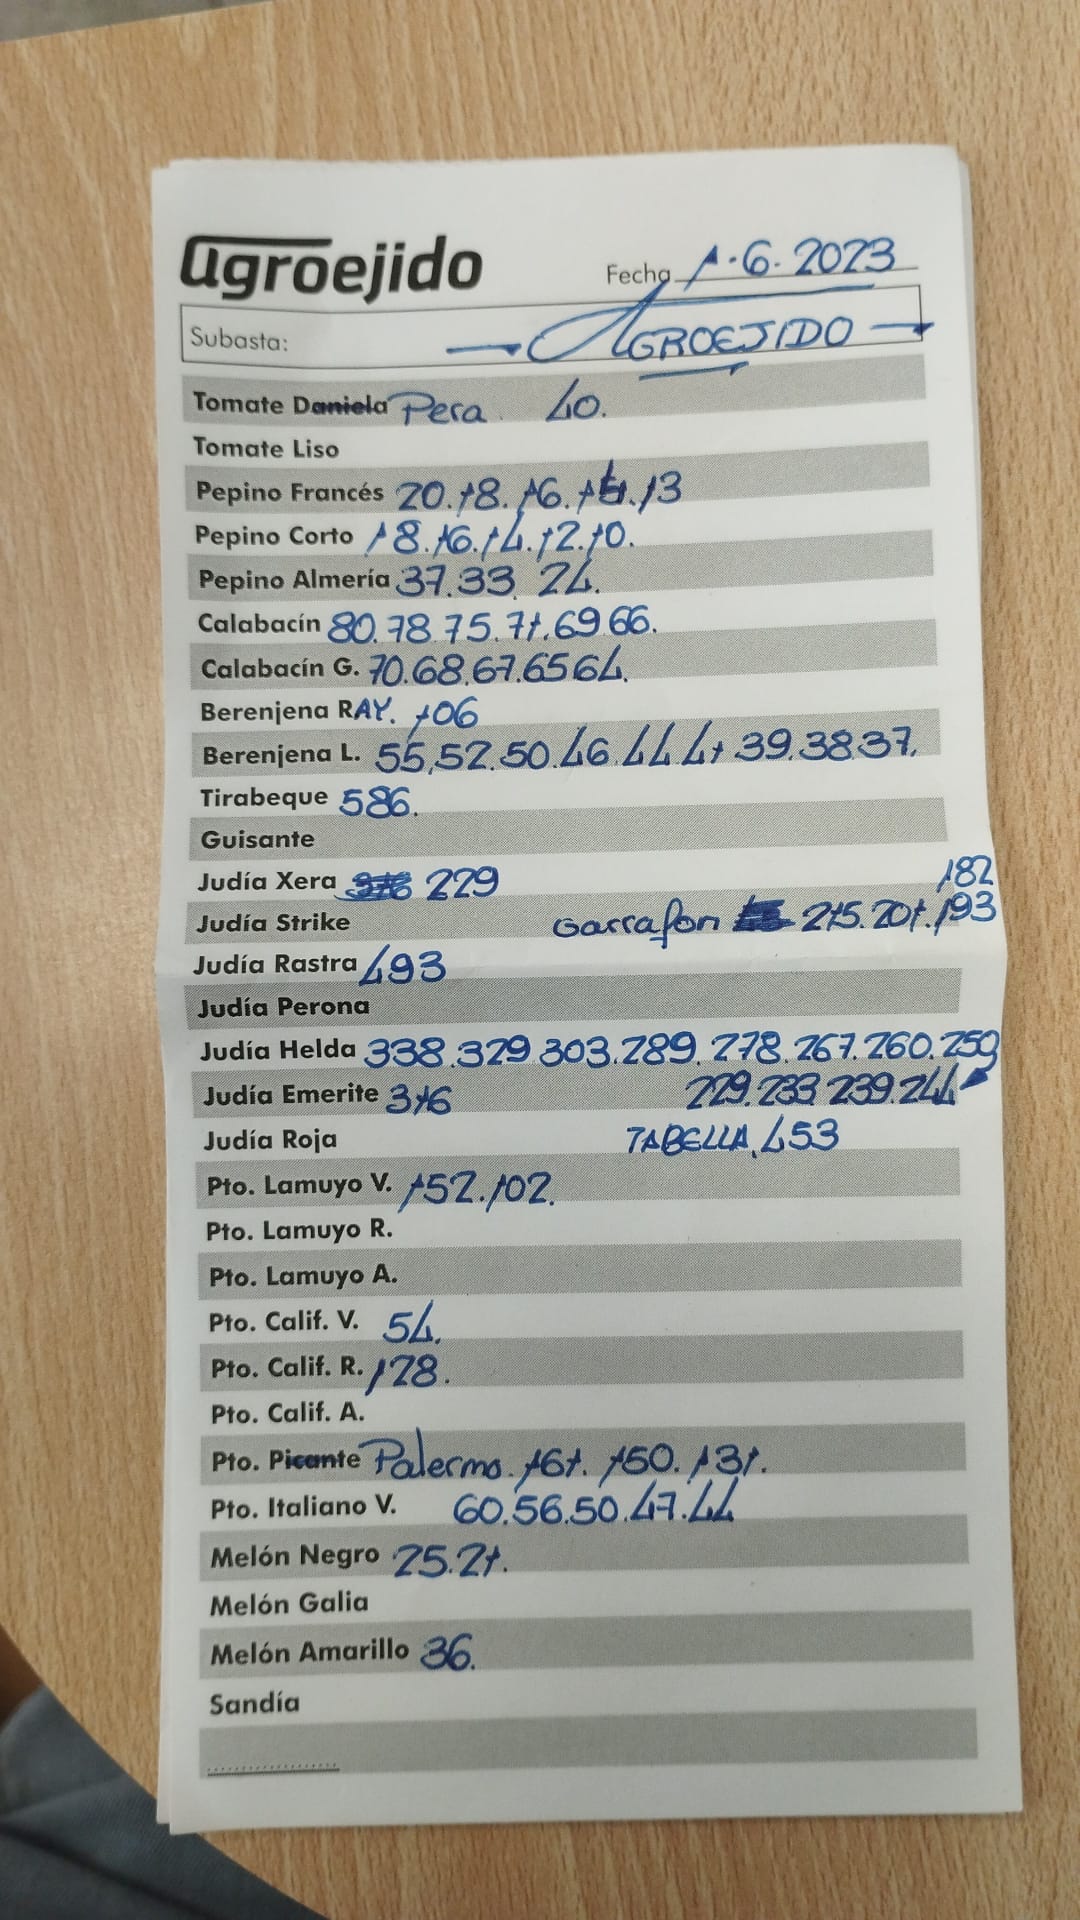 agroejido
Fecha 1.6.2023
Subasta: AGROEJIDO
Tomate Daniela Pera. 40.
Tomate Liso
Pepino Francés 20.18.16.15.13
Pepino Corto 18.16.14.12.10.
Pepino Almería 37.33. 24.
Calabacín 80.78.75.71.69 66.
Calabacín G. 70.68.67.65 64.
Berenjena RAY. 106
Berenjena L. 55,52.50.46.44 41 39.38 37.
Tirabeque 586.
Guisante
Judía Xera 229
182
Judía Strike Garrafon 215.201.193
Judía Rastra 493
Judía Perona
Judía Helda 338.329 303.289. 278.267.260.250
Judía Emerite 316 229.233 239.244
Judía Roja TABELLA. 453
Pto. Lamuyo V. 152.102.
Pto. Lamuyo R.
Pto. Lamuyo A.
Pto. Calif. V. 54.
Pto. Calif. R. 128.
Pto. Calif. A.
Pto. Picante Palermo. 161. 150. 131.
Pto. Italiano V. 60.56.50.47.44
Melón Negro 25.21.
Melón Galia
Melón Amarillo 36.
Sandía